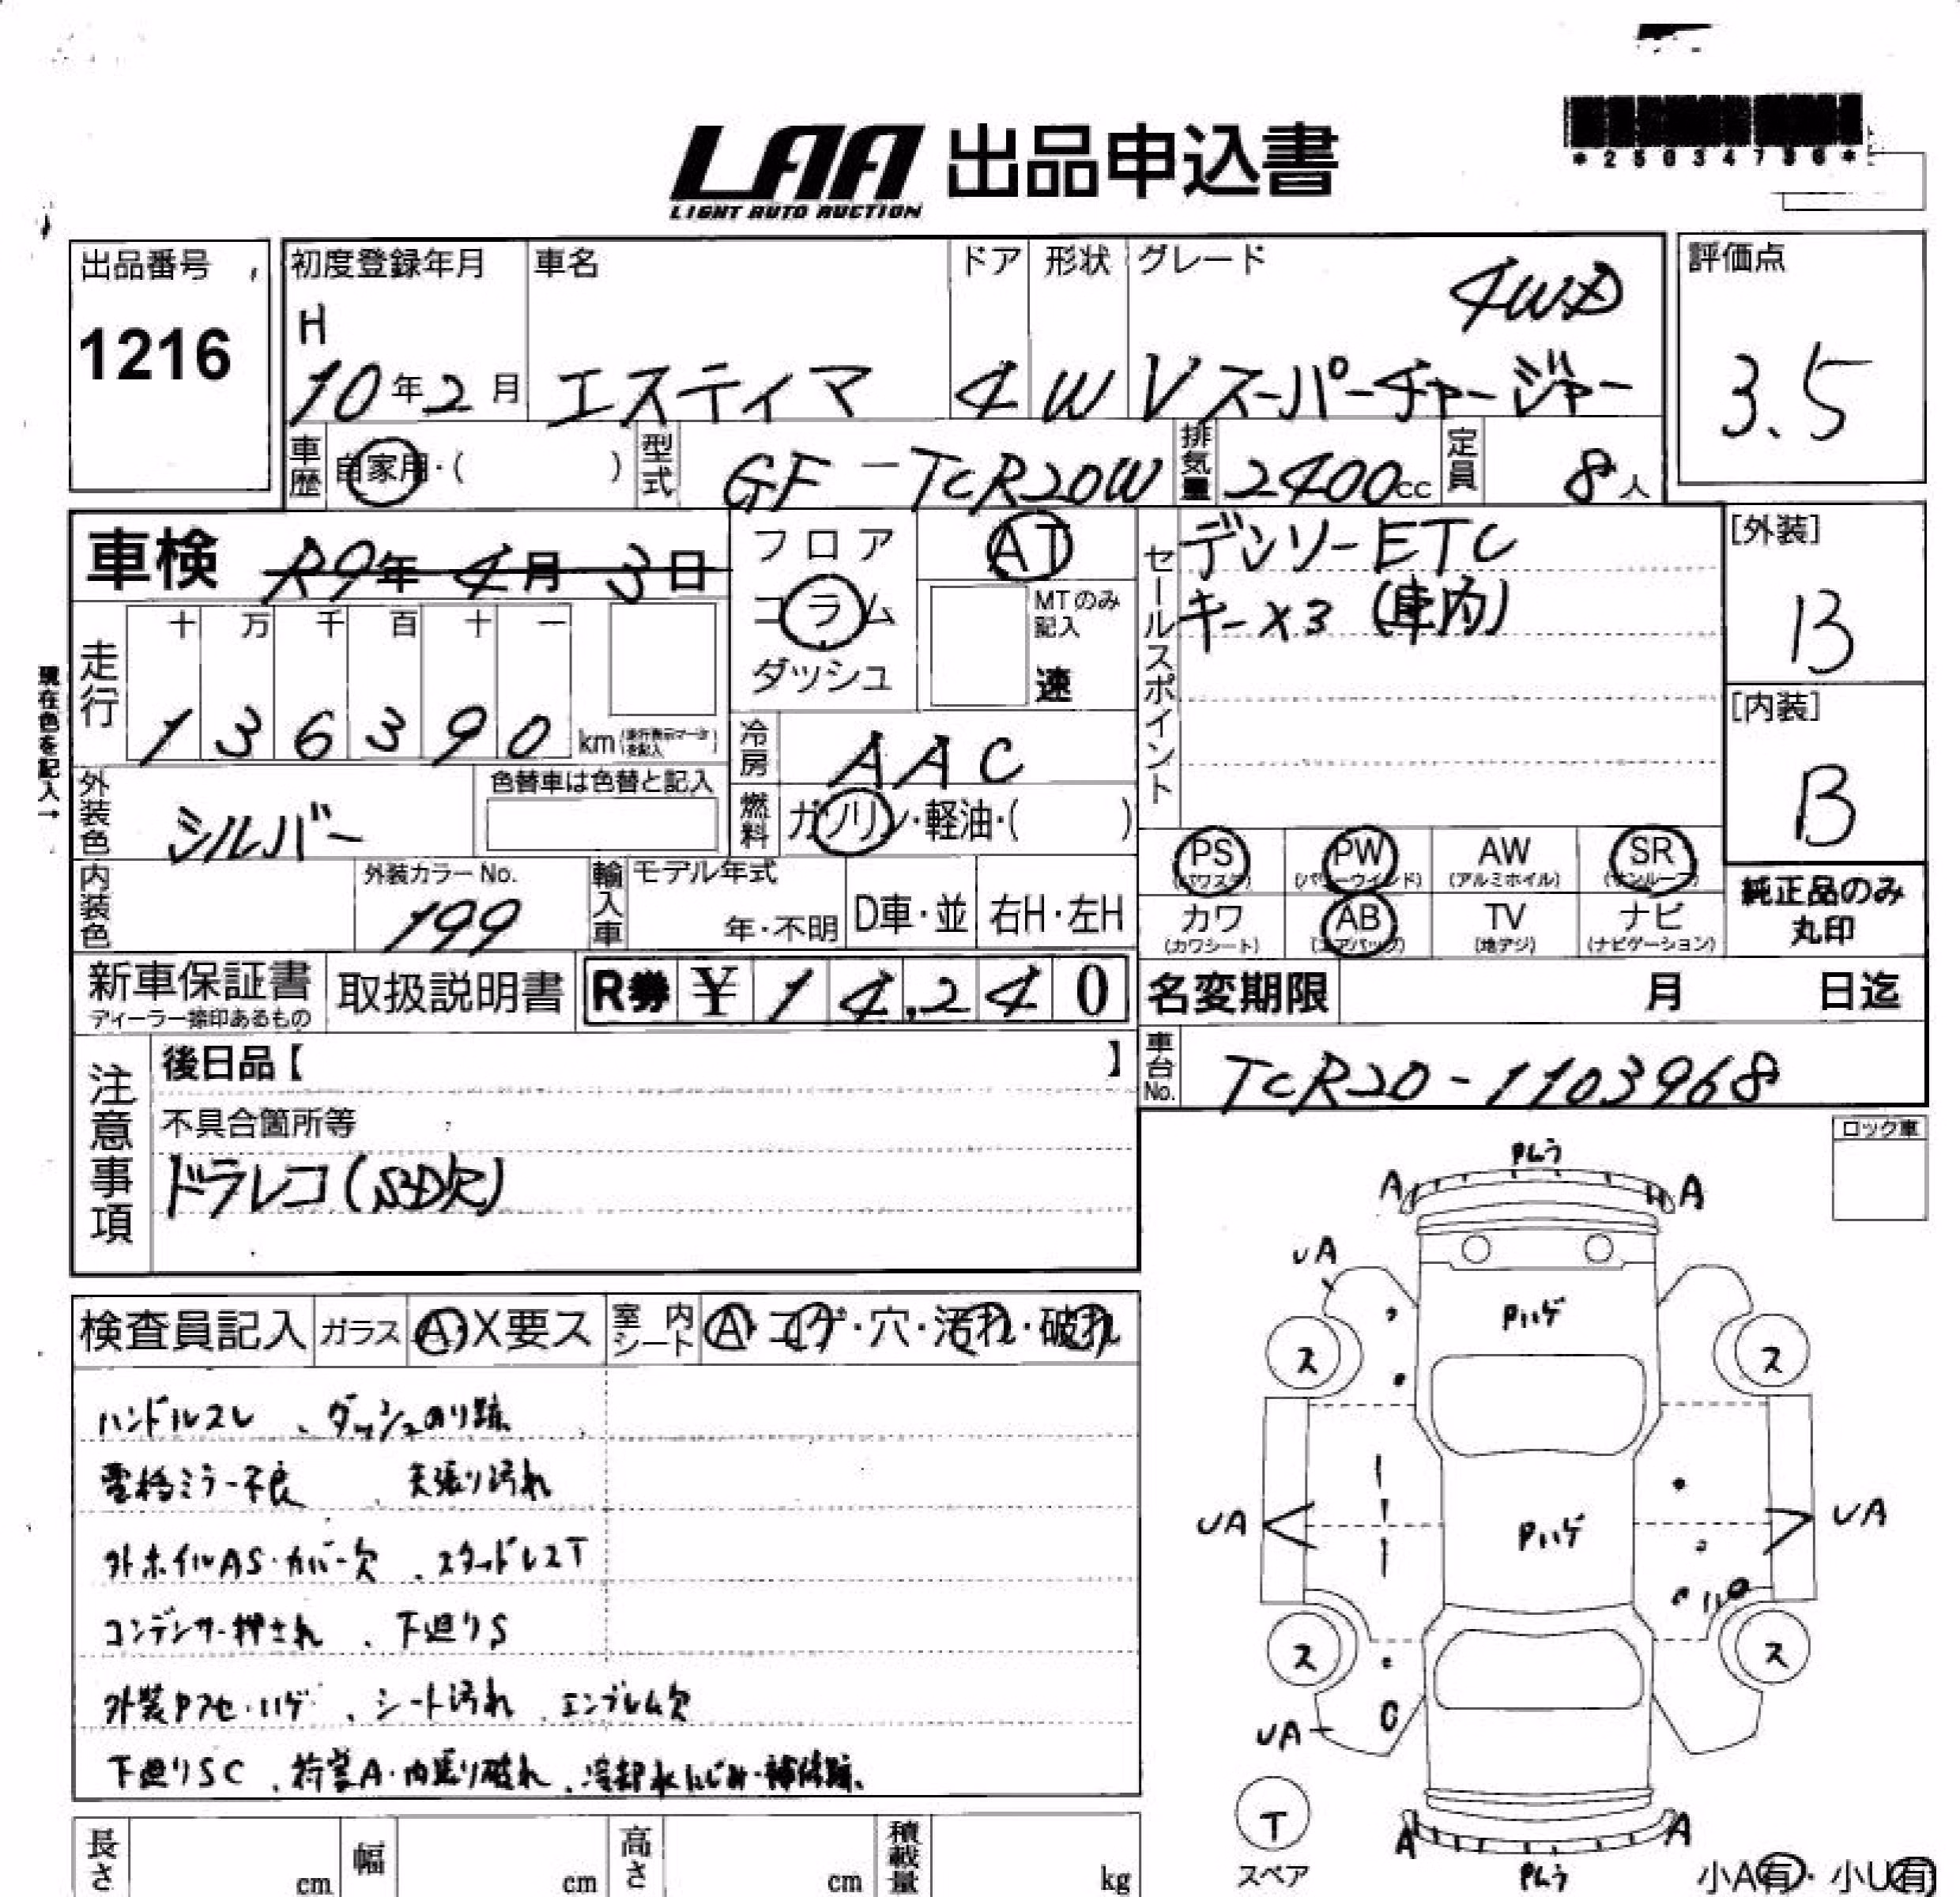 LAA 出品申込書
LIGHT AUTO AUCTION
*25034736*
出品番号
1216
初度登録年月
H
10年2月
車名
エスティマ
ドア
4
形状
W
グレード
4WD
Vスーパーチャージャー
評価点
3.5
車歴
自家用・( )
型式
GF-TCR20W
排気量
2400cc
定員
8人
車検 R9年4月3日
フロア
コラム
ダッシュ
AT
MTのみ記入
速
セールスポイント
デンソーETC
キー×3 (車内)
[外装]
B
[内装]
B
現在色を記入→
走行
十 万 千 百 十 一
1 3 6 3 9 0 km
冷房
AAC
外装色
シルバー
色替車は色替と記入
燃料
ガソリン・軽油・( )
PS (パワステ)
PW (パワーウインド)
AW (アルミホイル)
SR (サンルーフ)
カワ (カワシート)
AB (エアバック)
TV (地デジ)
ナビ (ナビゲーション)
純正品のみ
丸印
内装色
外装カラーNo.
199
輸入車
モデル年式
年・不明
D車・並
右H・左H
新車保証書
ディーラー捺印あるもの
取扱説明書
R券 ¥ 14,240
名変期限 月 日迄
車台No.
TCR20-1103968
注意事項
後日品【 】
不具合箇所等
ドラレコ(SD欠)
ロック車
検査員記入
ガラス
A X 要ス
室内シート
A・コゲ・穴・汚れ・破れ
ハンドルスレ、ダッシュのり跡
電格ミラー不良、天張り汚れ
外ホイルAS・カバー欠、スタッドレスT
コンデンサー押され、下廻りS
外装Pフセ・ハゲ、シート汚れ、エンブレム欠
下廻りSC、荷室A・内張り破れ、冷却水にじみ・補修跡
Pムラ
A
A
UA
Pハゲ
ス
ス
UA
Pハゲ
UA
ス
ス
UA
T
スペア
A
A
Pムラ
小A有・小U有
長さ cm
幅 cm
高さ cm
積載量 kg